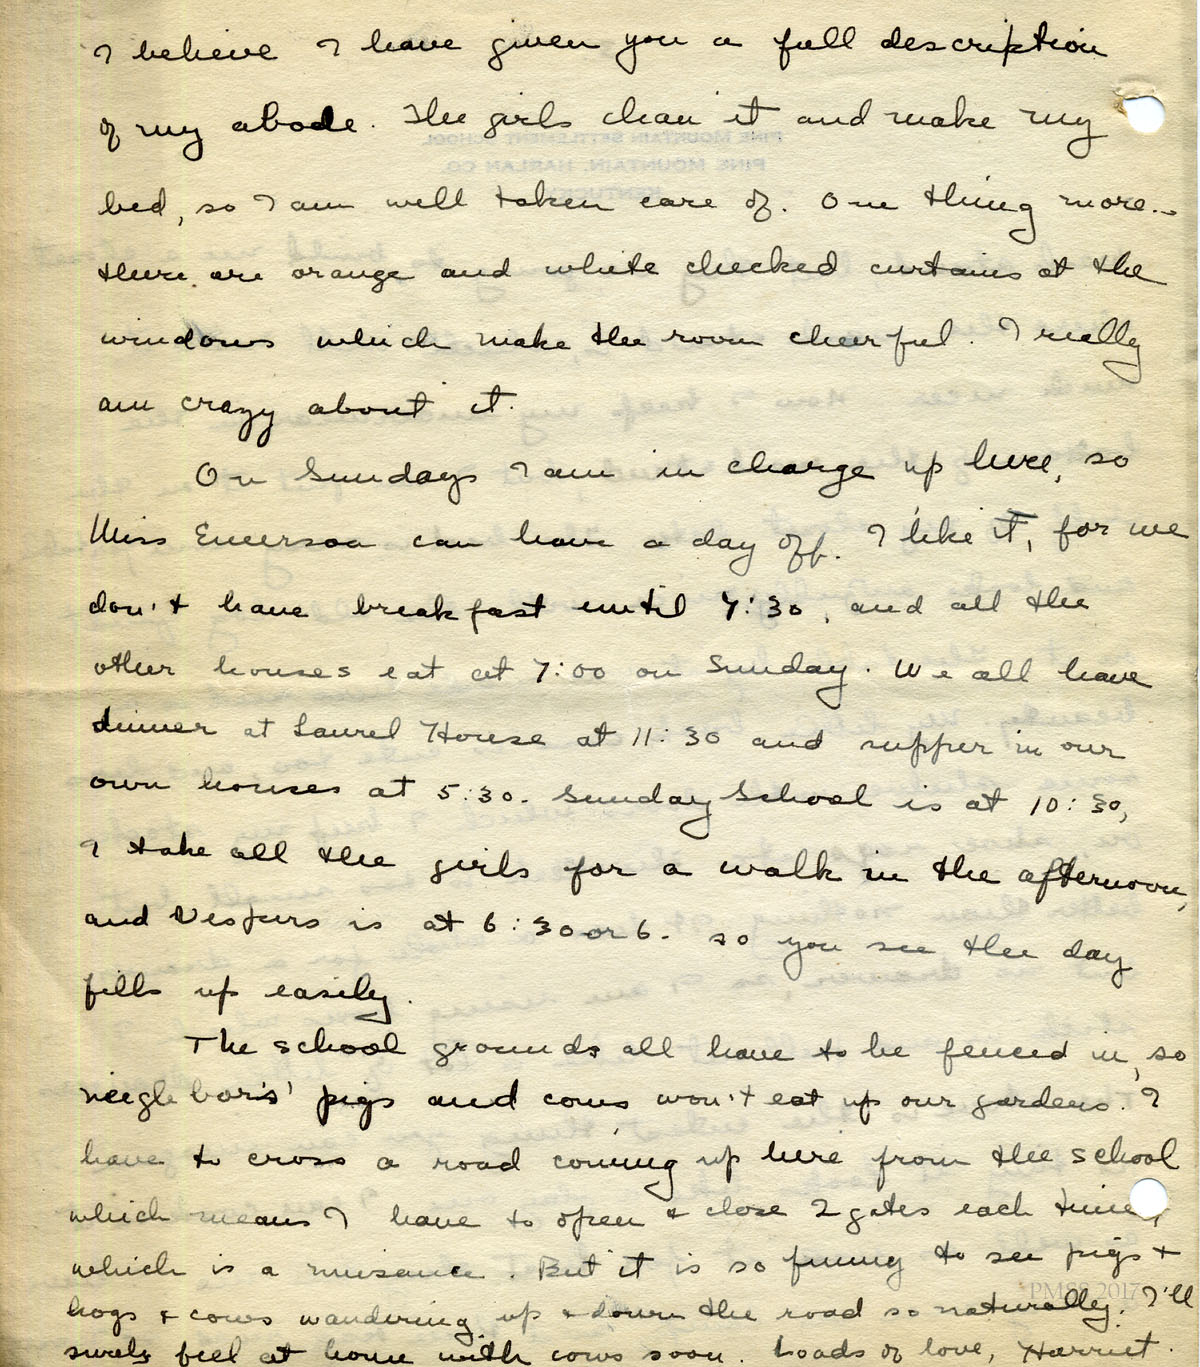 I believe I have given you a full description
of my abode. The girls clean it and make my
bed, so I am well taken care of. One thing more--
there are orange and white checked curtains at the
windows which make the room cheerful. I really
am crazy about it.
On Sundays I am in charge up here, so
Miss Emerson can have a day off. I like it, for we
don't have breakfast until 7:30, and all the
other houses eat at 7:00 on Sunday. We all have
dinner at Laurel House at 11:30 and supper in our
own houses at 5:30. Sunday School is at 10:30,
I take all the girls for a walk in the afternoon,
and Vespers is at 6:30 or 6. So you see the day
fills up easily.
The school grounds all have to be fenced in, so
neighbors' pigs and cows won't eat up our gardens. I
have to cross a road coming up here from the school
which means I have to open & close 2 gates each time,
which is a nuisance. But it is so funny to see pigs +
hogs & cows wandering up & down the road so naturally. I'll
surely feel at home with cows soon. Loads of love, Harriet.
PINE MOUNTAIN SETTLEMENT SCHOOL
PINE MOUNTAIN, HARLAN CO.
KENTUCKY
PMSS 2017